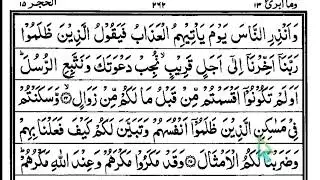 وما ابرئ ١٣ ٢٦٢ الحجر ١٥
وَاَنْذِرِ النَّاسَ يَوْمَ يَاْتِيْهِمُ الْعَذَابُ فَيَقُوْلُ الَّذِيْنَ ظَلَمُوْا
رَبَّنَاۤ اَخِّرْنَاۤ اِلٰۤى اَجَلٍ قَرِيْبٍ ۙ نُّجِبْ دَعْوَتَكَ وَنَتَّبِعِ الرُّسُلَ ؕ
اَوَلَمْ تَكُوْنُوْۤا اَقْسَمْتُمْ مِّنْ قَبْلُ مَا لَكُمْ مِّنْ زَوَالٍ ۙ﴿۴۴﴾ وَّسَكَنْتُمْ
فِيْ مَسٰكِنِ الَّذِيْنَ ظَلَمُوْۤا اَنْفُسَهُمْ وَتَبَيَّنَ لَكُمْ كَيْفَ فَعَلْنَا بِهِمْ
وَضَرَبْنَا لَكُمُ الْاَمْثَالَ ﴿۴۵﴾ وَقَدْ مَكَرُوْا مَكْرَهُمْ وَعِنْدَ اللّٰهِ مَكْرُهُمْ ؕ